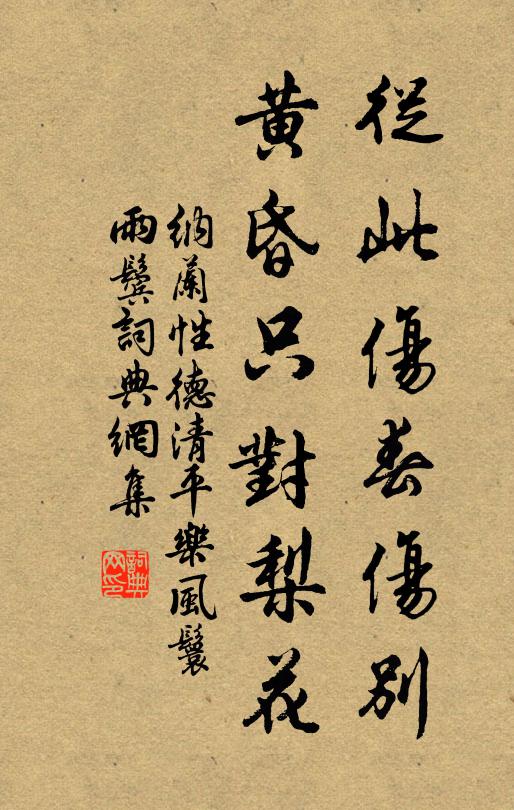 從此傷春傷別
黃昏只對梨花
納蘭性德清平樂風鬟
雨鬢詞典網集
詞典
网印